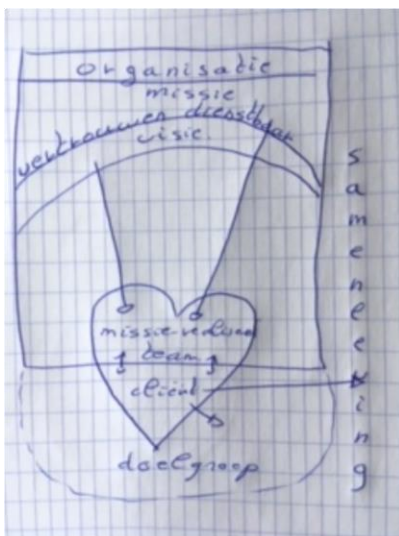 organisatie
missie
vertrouwen dienstbaar
visie
team
cliënt
doelgroep
samenleving